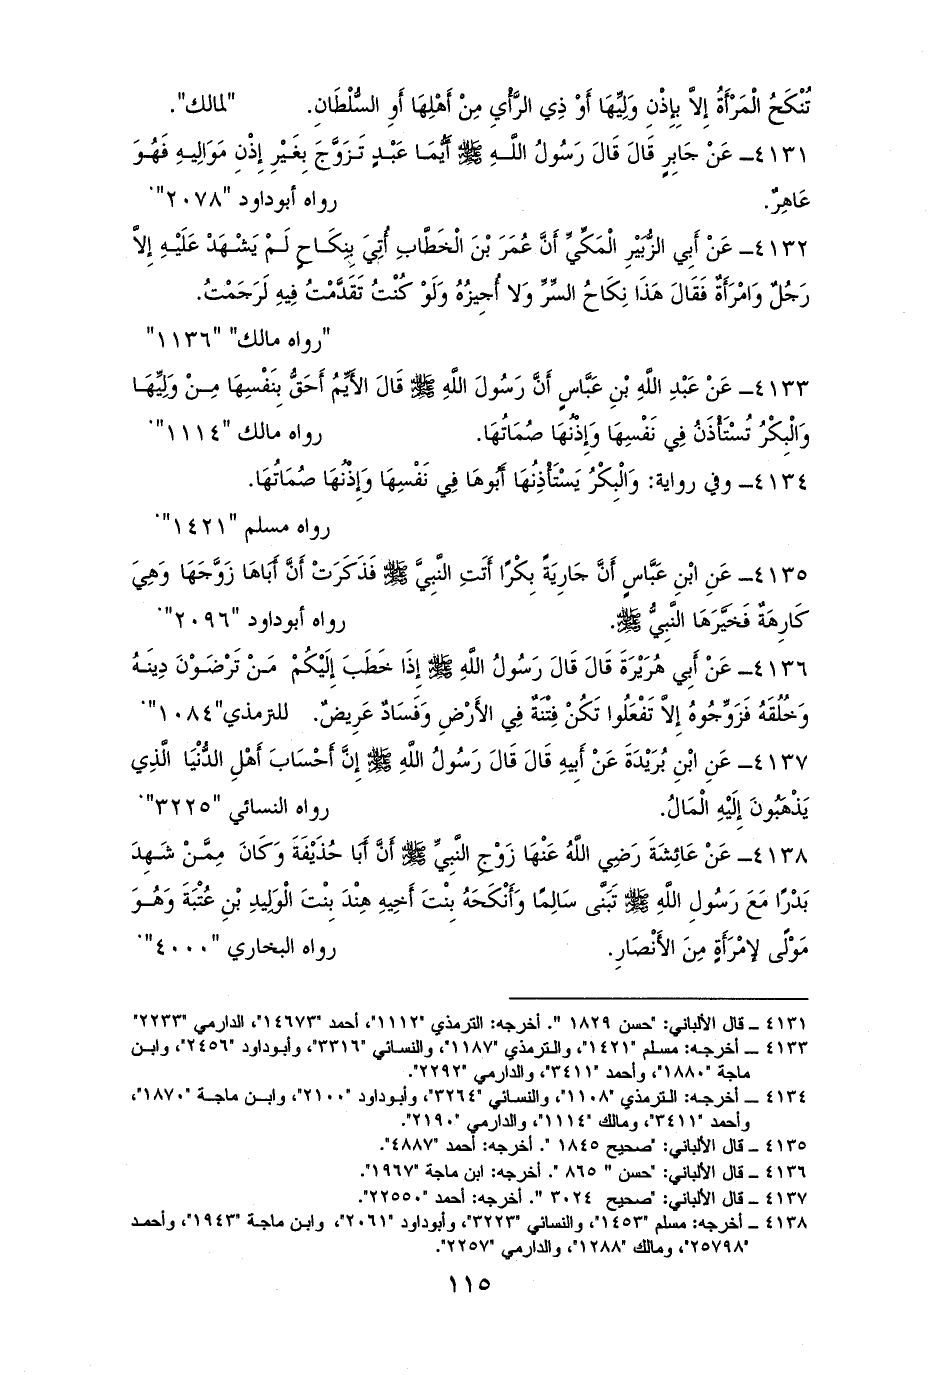 تُنْكَحُ الْمَرْأَةُ إِلاَّ بِإِذْنِ وَلِيِّهَا أَوْ ذِي الرَّأْيِ مِنْ أَهْلِهَا أَوِ السُّلْطَانِ. "لمالك".
٤١٣١ــ عَنْ جَابِرٍ قَالَ قَالَ رَسُولُ اللَّهِ ﷺ أَيُّمَا عَبْدٍ تَزَوَّجَ بِغَيْرِ إِذْنِ مَوَالِيهِ فَهُوَ
عَاهِرٌ. رواه أبوداود "٢٠٧٨".
٤١٣٢ــ عَنْ أَبِي الزُّبَيْرِ الْمَكِّيِّ أَنَّ عُمَرَ بْنَ الْخَطَّابِ أُتِيَ بِنِكَاحٍ لَمْ يَشْهَدْ عَلَيْهِ إِلاَّ
رَجُلٌ وَامْرَأَةٌ فَقَالَ هَذَا نِكَاحُ السِّرِّ وَلا أُجِيزُهُ وَلَوْ كُنْتُ تَقَدَّمْتُ فِيهِ لَرَجَمْتُ.
"رواه مالك" "١١٣٦"
٤١٣٣ــ عَنْ عَبْدِ اللَّهِ بْنِ عَبَّاسٍ أَنَّ رَسُولَ اللَّهِ ﷺ قَالَ الأَيِّمُ أَحَقُّ بِنَفْسِهَا مِنْ وَلِيِّهَا
وَالْبِكْرُ تُسْتَأْذَنُ فِي نَفْسِهَا وَإِذْنُهَا صُمَاتُهَا. رواه مالك "١١١٤".
٤١٣٤ــ وفي رواية: وَالْبِكْرُ يَسْتَأْذِنُهَا أَبُوهَا فِي نَفْسِهَا وَإِذْنُهَا صُمَاتُهَا.
رواه مسلم "١٤٢١".
٤١٣٥ــ عَنِ ابْنِ عَبَّاسٍ أَنَّ جَارِيَةً بِكْرًا أَتَتِ النَّبِيَّ ﷺ فَذَكَرَتْ أَنَّ أَبَاهَا زَوَّجَهَا وَهِيَ
كَارِهَةٌ فَخَيَّرَهَا النَّبِيُّ ﷺ. رواه أبوداود "٢٠٩٦".
٤١٣٦ــ عَنْ أَبِي هُرَيْرَةَ قَالَ قَالَ رَسُولُ اللَّهِ ﷺ إِذَا خَطَبَ إِلَيْكُمْ مَنْ تَرْضَوْنَ دِينَهُ
وَخُلُقَهُ فَزَوِّجُوهُ إِلاَّ تَفْعَلُوا تَكُنْ فِتْنَةٌ فِي الأَرْضِ وَفَسَادٌ عَرِيضٌ. للترمذي"١٠٨٤".
٤١٣٧ــ عَنِ ابْنِ بُرَيْدَةَ عَنْ أَبِيهِ قَالَ قَالَ رَسُولُ اللَّهِ ﷺ إِنَّ أَحْسَابَ أَهْلِ الدُّنْيَا الَّذِي
يَذْهَبُونَ إِلَيْهِ الْمَالُ. رواه النسائي "٣٢٢٥".
٤١٣٨ــ عَنْ عَائِشَةَ رَضِي اللَّهُ عَنْهَا زَوْجِ النَّبِيِّ ﷺ أَنَّ أَبَا حُذَيْفَةَ وَكَانَ مِمَّنْ شَهِدَ
بَدْرًا مَعَ رَسُولِ اللَّهِ ﷺ تَبَنَّى سَالِمًا وَأَنْكَحَهُ بِنْتَ أَخِيهِ هِنْدَ بِنْتَ الْوَلِيدِ بْنِ عُتْبَةَ وَهُوَ
مَوْلًى لِامْرَأَةٍ مِنَ الأَنْصَارِ. رواه البخاري "٤٠٠٠".
٤١٣١ ــ قال الألباني: "حسن ١٨٢٩ ". أخرجه: الترمذي "١١١٢"، أحمد "١٤٦٧٣"، الدارمي "٢٢٣٣"
٤١٣٣ ــ أخرجه: مسلم "١٤٢١"، والترمذي "١١٨٧"، والنسائي "٣٣١٦"، وأبوداود "٢٤٥٦"، وابن
ماجة "١٨٨٠"، وأحمد "٣٤١١"، والدارمي "٢٢٩٢".
٤١٣٤ ــ أخرجه: الترمذي "١١٠٨"، والنسائي "٣٢٦٤"، وأبوداود "٢١٠٠"، وابن ماجة "١٨٧٠"،
وأحمد "٣٤١١"، ومالك "١١١٤"، والدارمي "٢١٩٠".
٤١٣٥ ــ قال الألباني: "صحيح ١٨٤٥ ". أخرجه: أحمد "٤٨٨٧".
٤١٣٦ ــ قال الألباني: "حسن " ٨٦٥ ". أخرجه: ابن ماجة "١٩٦٧".
٤١٣٧ ــ قال الألباني: "صحيح ٣٠٢٤ ". أخرجه: أحمد "٢٢٥٥٠".
٤١٣٨ ــ أخرجه: مسلم "١٤٥٣"، والنسائي "٣٢٢٣"، وأبوداود "٢٠٦١"، وابن ماجة "١٩٤٣"، وأحمد
"٢٥٧٩٨"، ومالك "١٢٨٨"، والدارمي "٢٢٥٧".
١١٥